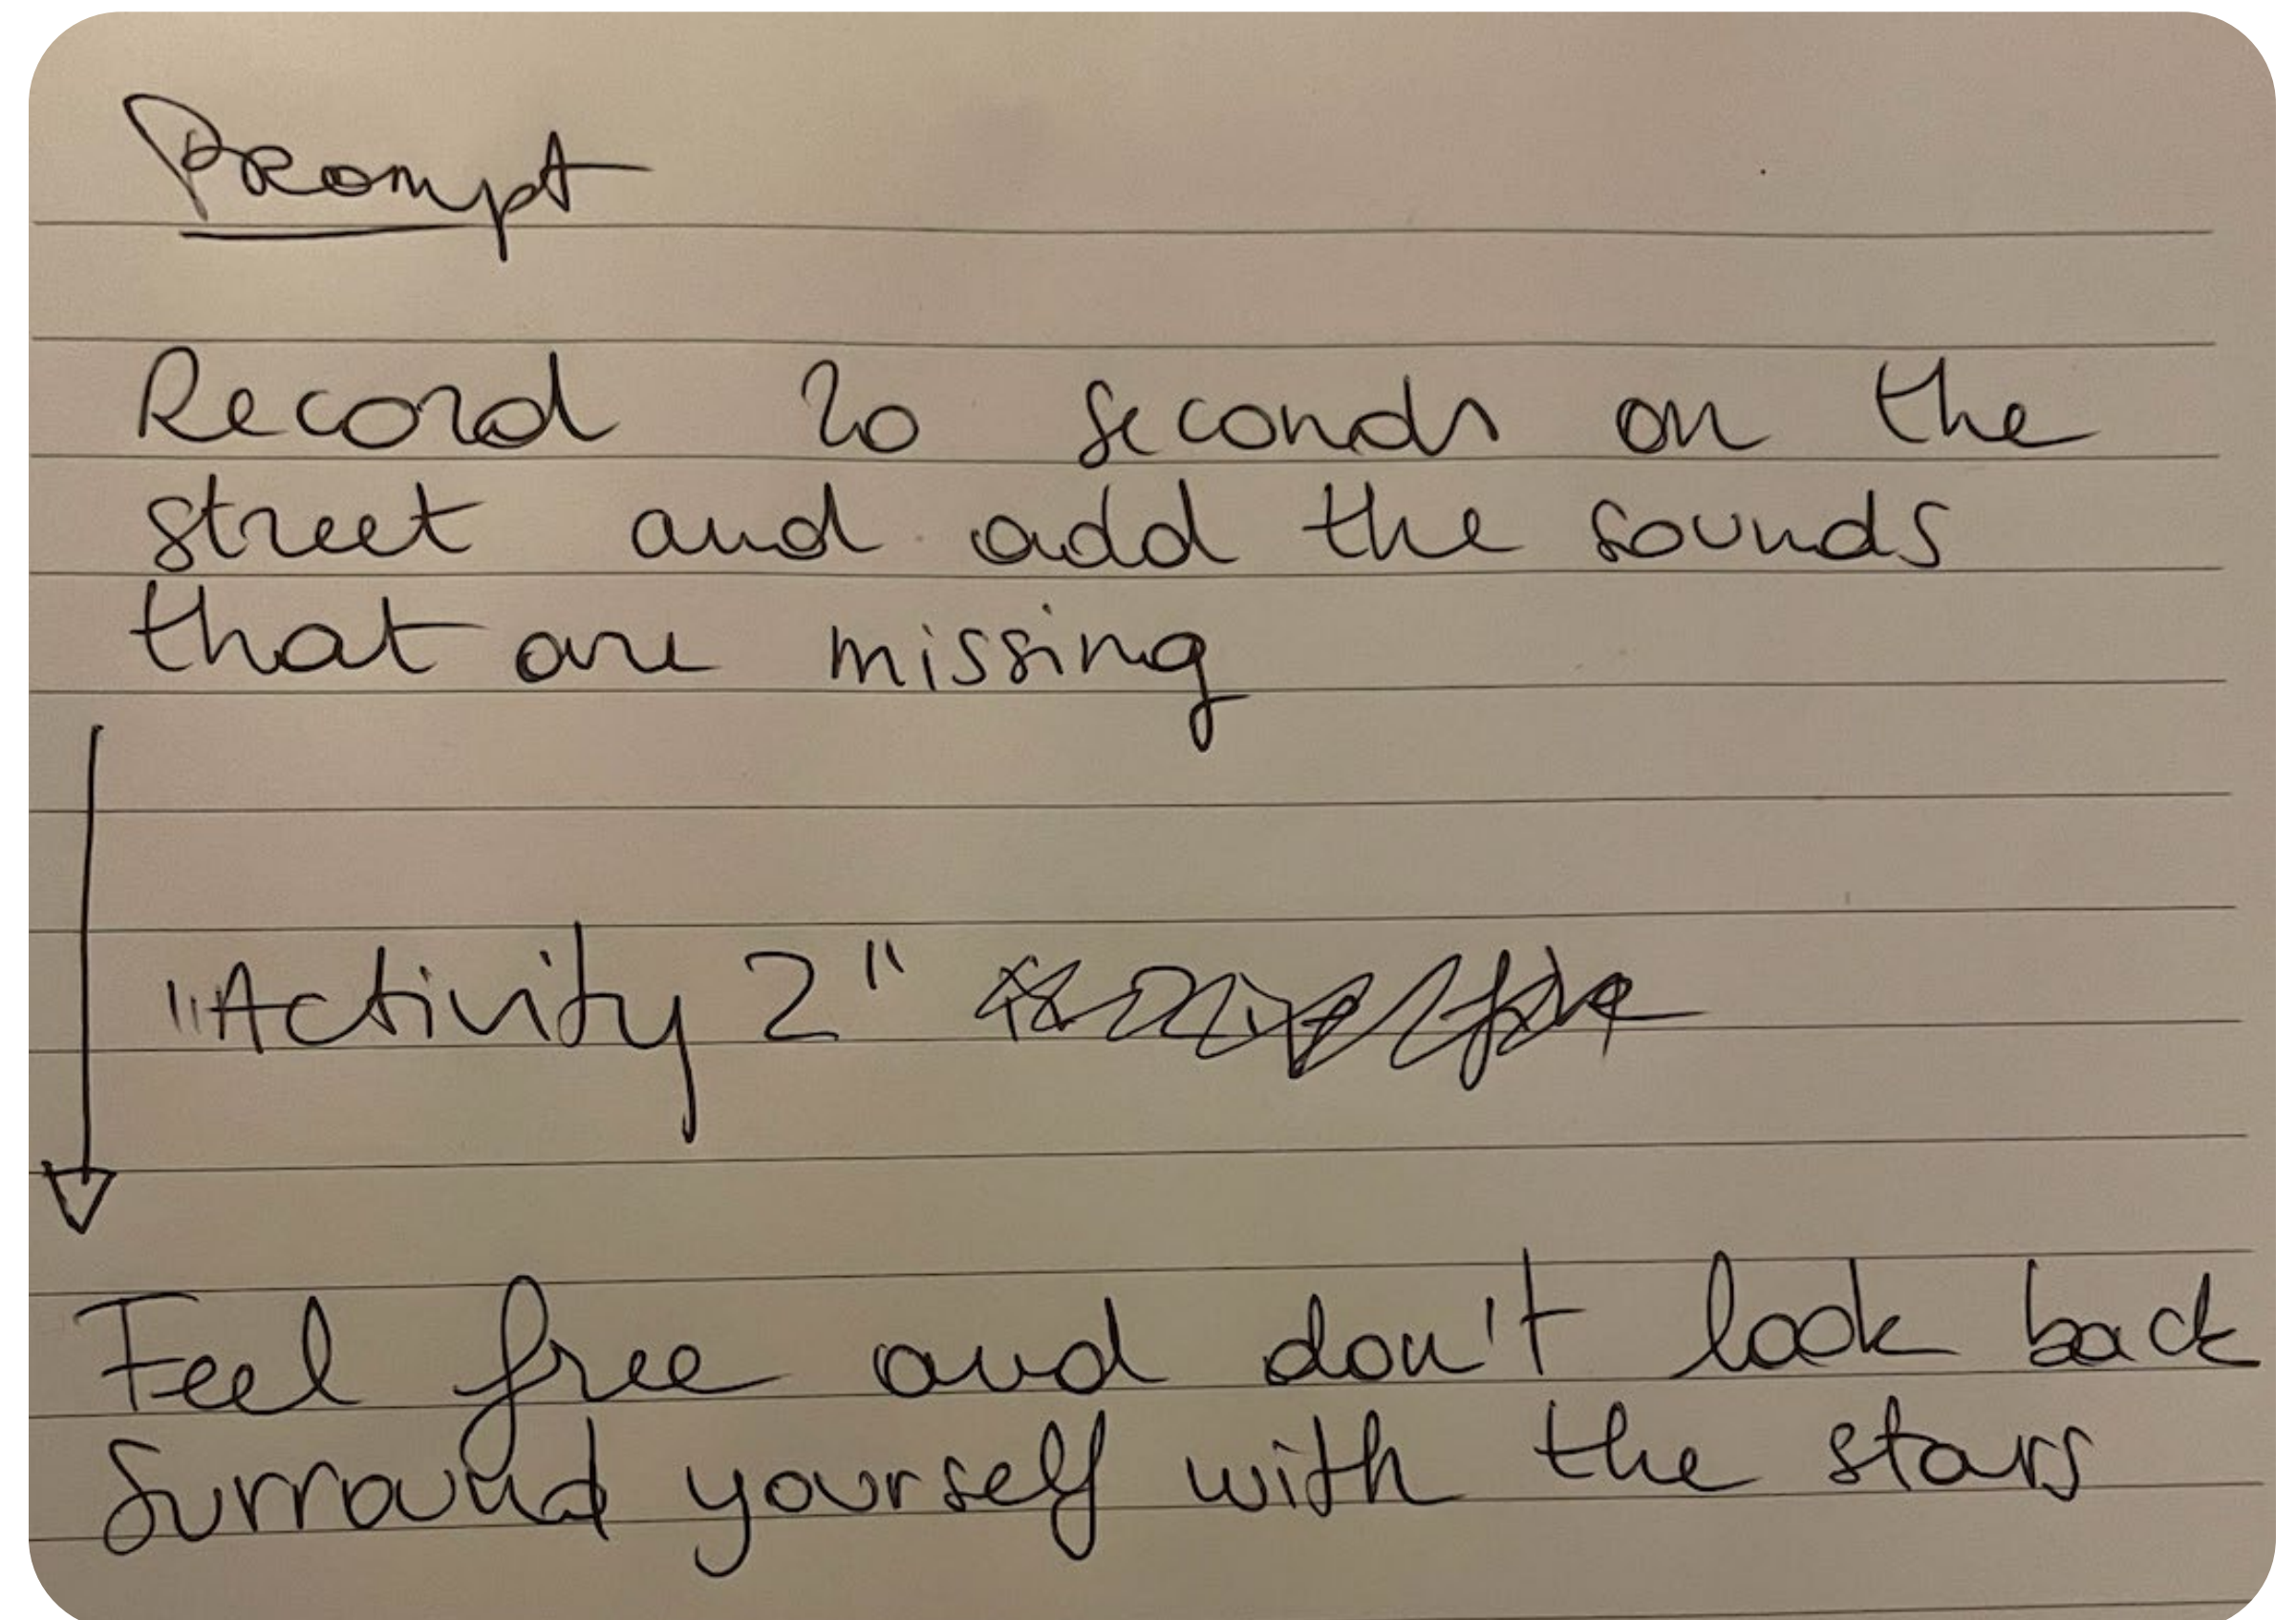 Prompt
Record 20 seconds on the
street and add the sounds
that are missing
"Activity 2"
Feel free and don't look back
Surround yourself with the stars